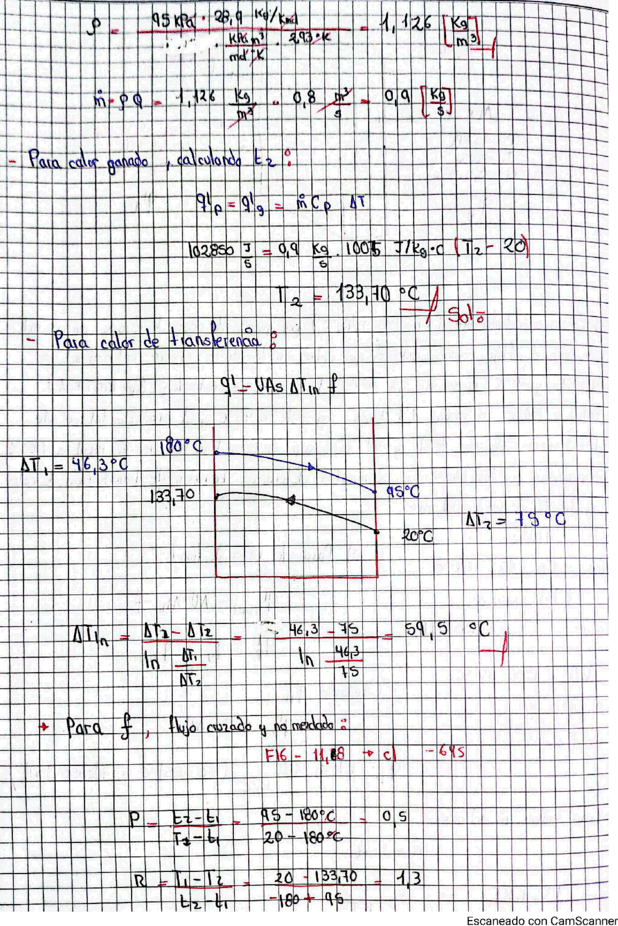 ρ = 95 kPa · 28,9 Kg/Kmol / kPa m³ / mol·K · 293·K = 1,126 [Kg/m³]
ṁ = ρQ = 1,126 Kg/m³ · 0,8 m³/s = 0,9 [Kg/s]
- Para calor ganado, calculando t₂:
q'p = q'g = ṁ Cp ΔT
102850 J/s = 0,9 Kg/s · 1005 J/Kg·C (T₂ - 20)
T₂ = 133,70 °C // Sol:
- Para calor de transferencia:
q' = UAs ΔTln f
180°C
ΔT₁ = 46,3°C
133,70
95°C
ΔT₂ = 75°C
20°C
ΔTln = ΔT₁ - ΔT₂ / ln ΔT₁/ΔT₂ = 46,3 - 75 / ln 46,3/75 = 59,5 °C
→ Para f, flujo cruzado y no mezclado:
F16 - 11,18 → c) - 645
P = t₂ - t₁ / T₁ - t₁ = 95 - 180°C / 20 - 180°C = 0,5
R = T₁ - T₂ / t₂ - t₁ = 20 - 133,70 / -180 + 95 = 1,3
Escaneado con CamScanner